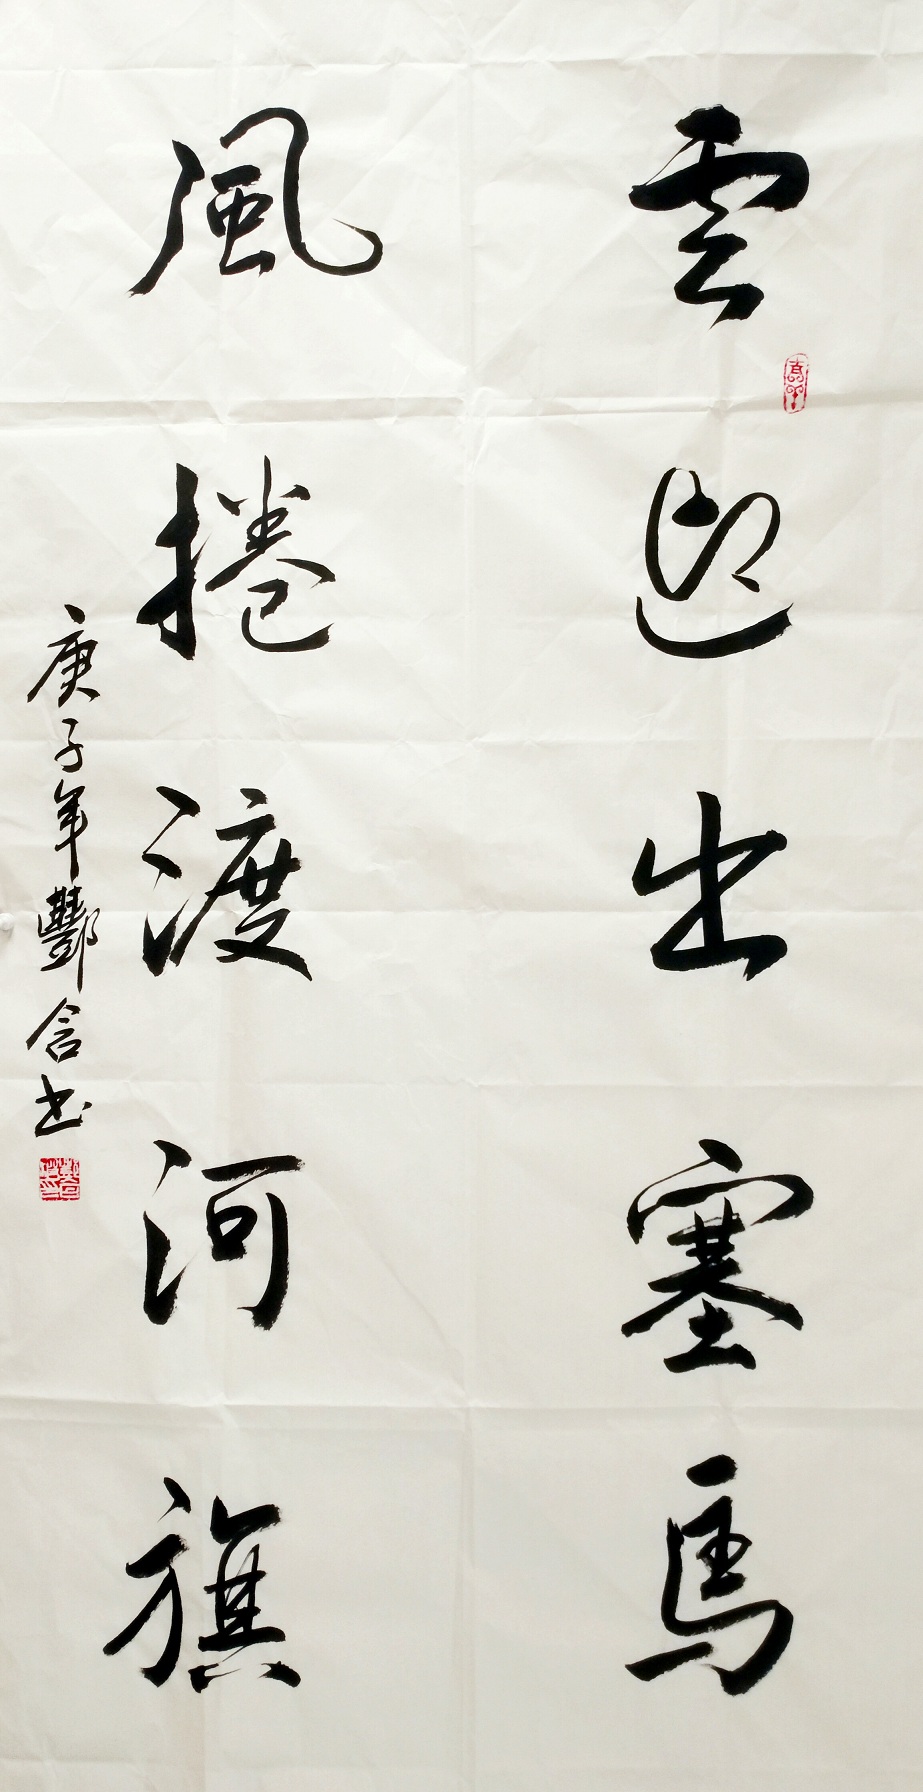 雲迎出塞馬
風捲渡河旗
庚子年酆含书